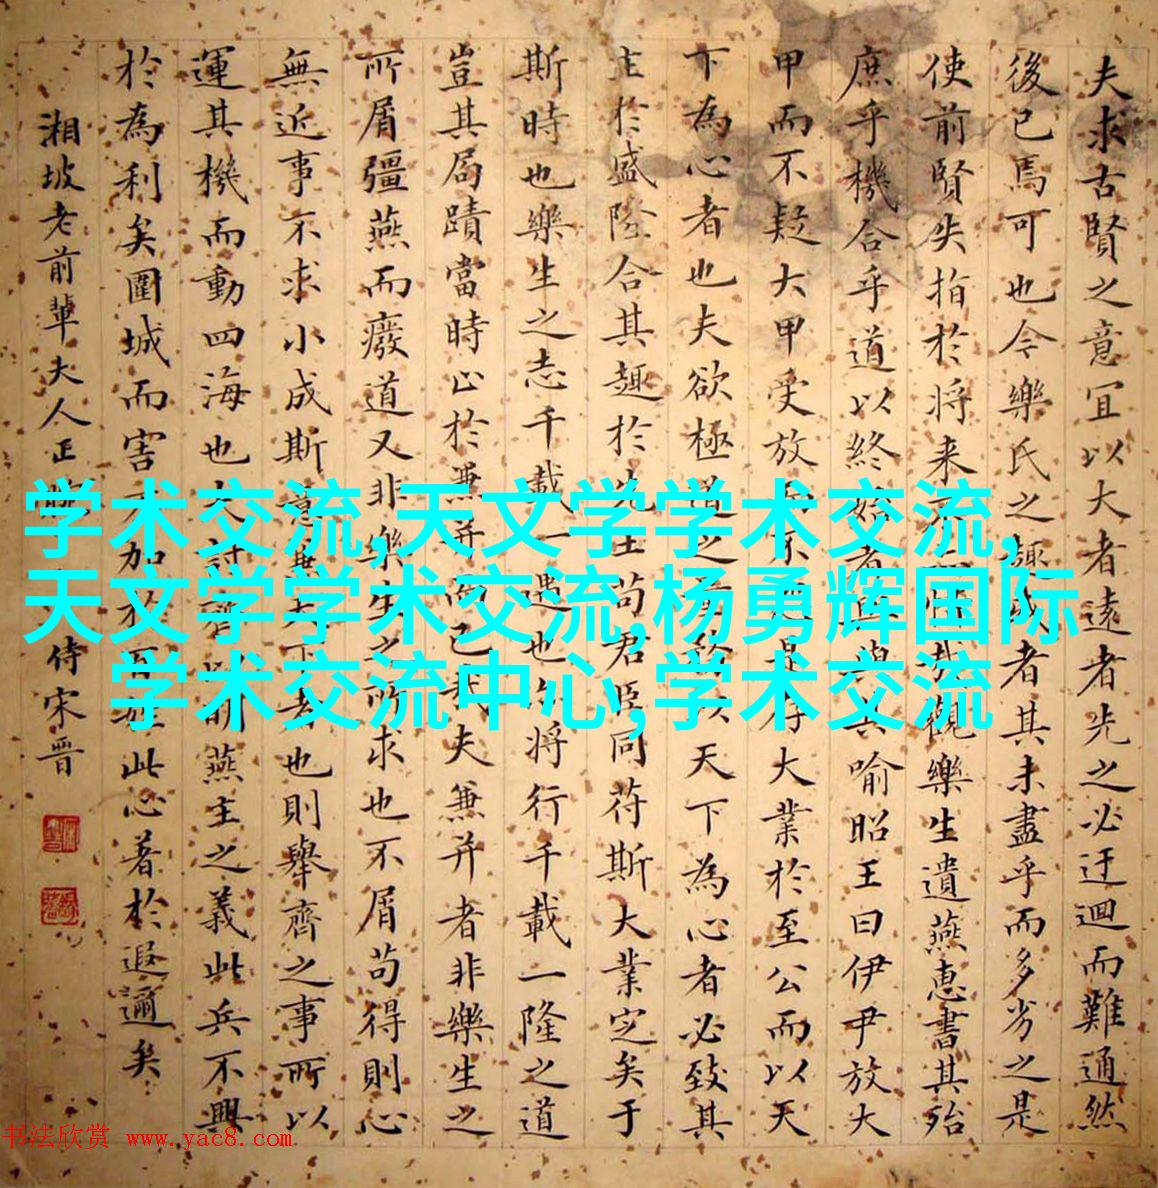 夫求古賢之意宜以大者遠者先之必迂迴而難通然
後已焉可也今樂氏之趣或者其未盡乎而多劣之是
使前賢失指於将来不亦惜哉觀樂生遺燕惠書其殆
庶乎機合乎道以終始者與其喻昭王曰伊尹放大
甲而不疑大甲受放而不怨是存大業於至公而以天
下為心者也夫欲極道之量務以天下為心者必致其
主於盛隆合其趣於先王苟君臣同苻斯大業定矣于
斯時也樂生之志千載一遇也亦将行千載一隆之道
豈其局蹟當時止於兼并而已哉夫兼并者非樂生之
所屑彊燕而廢道又非樂生之所求也不屑苟得則心
無近事不求小成斯意兼天下者也則舉齊之事所以
運其機而動四海也夫討齊以明燕主之義此兵不興
於為利矣圍城而害不加於百姓此心著於遐邇矣
湘坡老前輩夫人正
侍宋晋
学术交流,天文学学术交流,
天文学学术交流,杨勇辉国际
学术交流中心,学术交流
书法欣赏 www.yac8.com